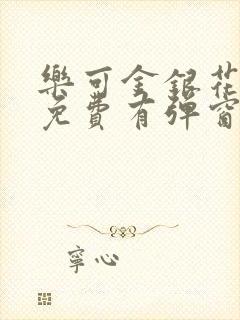 樂可金銀花
免費有彈窗
寧心